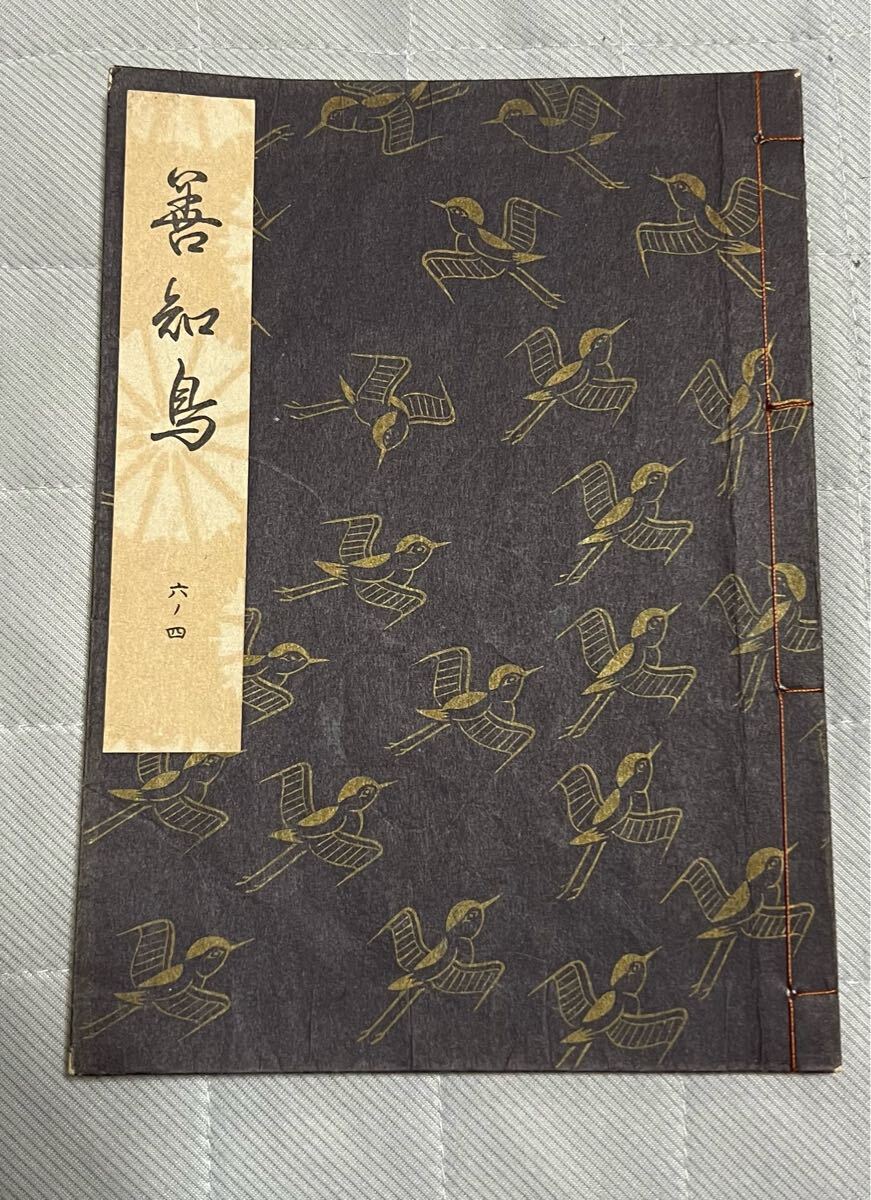 善知鳥
六ノ四